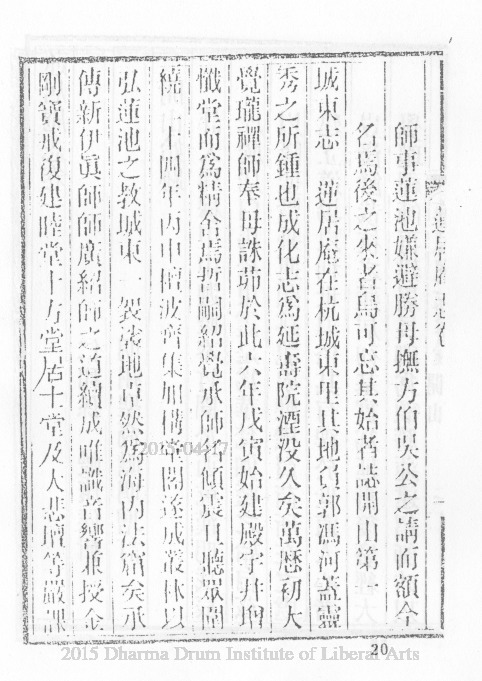 師事蓮池嫌避勝母撫方伯吳公之請而額今
名焉後之來者烏可忘其始者誌開山第一
城東志 蓮居庵在杭城東里其地負郭馮河蓋靈
秀之所鍾也成化志爲延壽院湮没久矣萬曆初大
覺瓏禪師奉母誅茆於此六年戊寅始建殿宇井增
懺堂而爲精舍焉哲嗣紹覺承師
傾震旦聽眾圍
繞二十四年丙申檀波齊集加構
閣遂成叢林以
弘蓮池之教城東一
地卓然爲海内法窟矣承
傳新伊眞師師廣紹師之道續成唯識音響並授金
剛寶戒復建睦堂十方堂居士堂及大悲壇等嚴課
蓮居庵志卷
2015-04-17
20
2015 Dharma Drum Institute of Liberal Arts